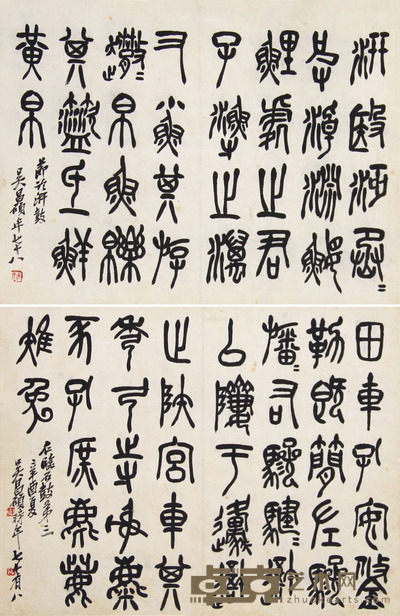 汧殹沔丞〓
皮淖淵鰋
鯉處之君
子漁之澫
又小魚其斿
𢿱〓帛魚皪〓
其氐鮮
黃帛
節臨汧鼓
吳昌碩年七十八
田車孔安鋚
勒既簡左驂
旛〓右驂騝〓
以隮于邍
止陜宮車其
秀弓寺射麋
豕孔庶麀鹿
雉兔
右臨石鼓第三
辛酉夏
吳昌碩時年七十有八